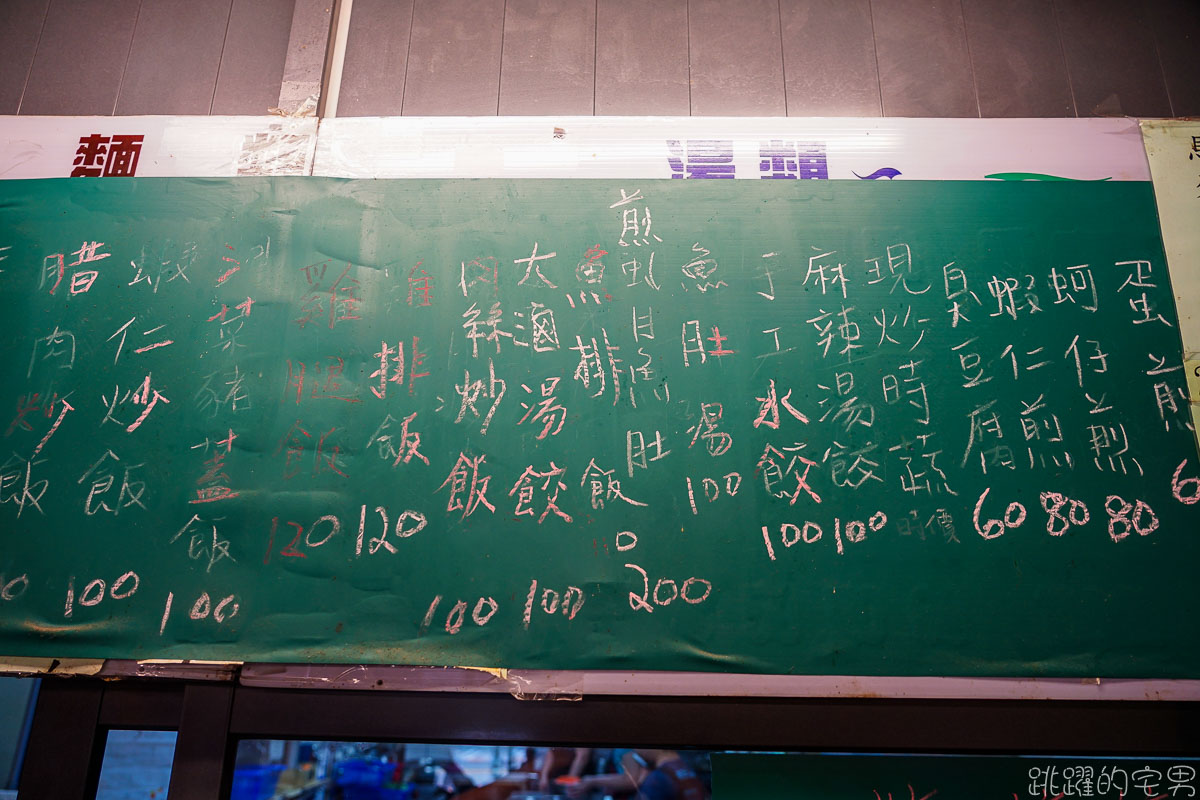 麵
湯類
蛋煎 6
蚵仔煎 80
蝦仁煎 80
臭豆腐 60
現炒時蔬 時價
麻辣湯餃 100
手工水餃 100
魚肚湯 100
煎虱目魚肚 200
魚排飯 110
大滷湯餃 100
肉絲炒飯 100
雞排飯 120
雞腿飯 120
菜豬蓋飯 100
蝦仁炒飯 100
腊肉炒飯
跳躍的宅男